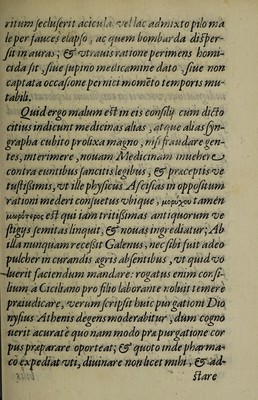 ritum secluserit acicula, vel lac admixto pilo ma
le per fauces elapso, ac quem bombarda disper-
sit in auras; & utrauis ratione perimens homi-
cida sit, siue supino medicamine dato, siue non
captata occasione pernici momẽto temporis mu-
tabili.
Quid ergo malum est in eis consilij cum dicto
citius indicunt medicinas alias, atque alias syn-
grapha cubito prolixa magno, nisi fraudare gen-
tes, interimere, nouam Medicinam inuehere
contra euntibus sanctis legibus, & præceptis ve
tustissimis, vt ille physicus Aseisas in oppositum
rationi mederi consuetus vbique, μωροῦ tamen
μωρότερος est qui iam tritissimas antiquorum ve
stigys semitas linquit, & nouas ingrediatur; Ab
illa nunquam recessit Galenus, nec sibi fuit adeo
pulcher in curandis agris absentibus, vt quid vo
luerit faciendum mandare: rogatus enim consi-
lium à Ciciliano pro filio laborante noluit temerè
præiudicare, verum scripsit huic purgationi Dio
nysius Athenis degens moderabitur, dum cogno
uerit acuratè quo nam modo præ purgatione cor
pus præparare oporteat; & quoto inde pharma-
co expediat vti, diuinare non licet mihi, & ad-
stare